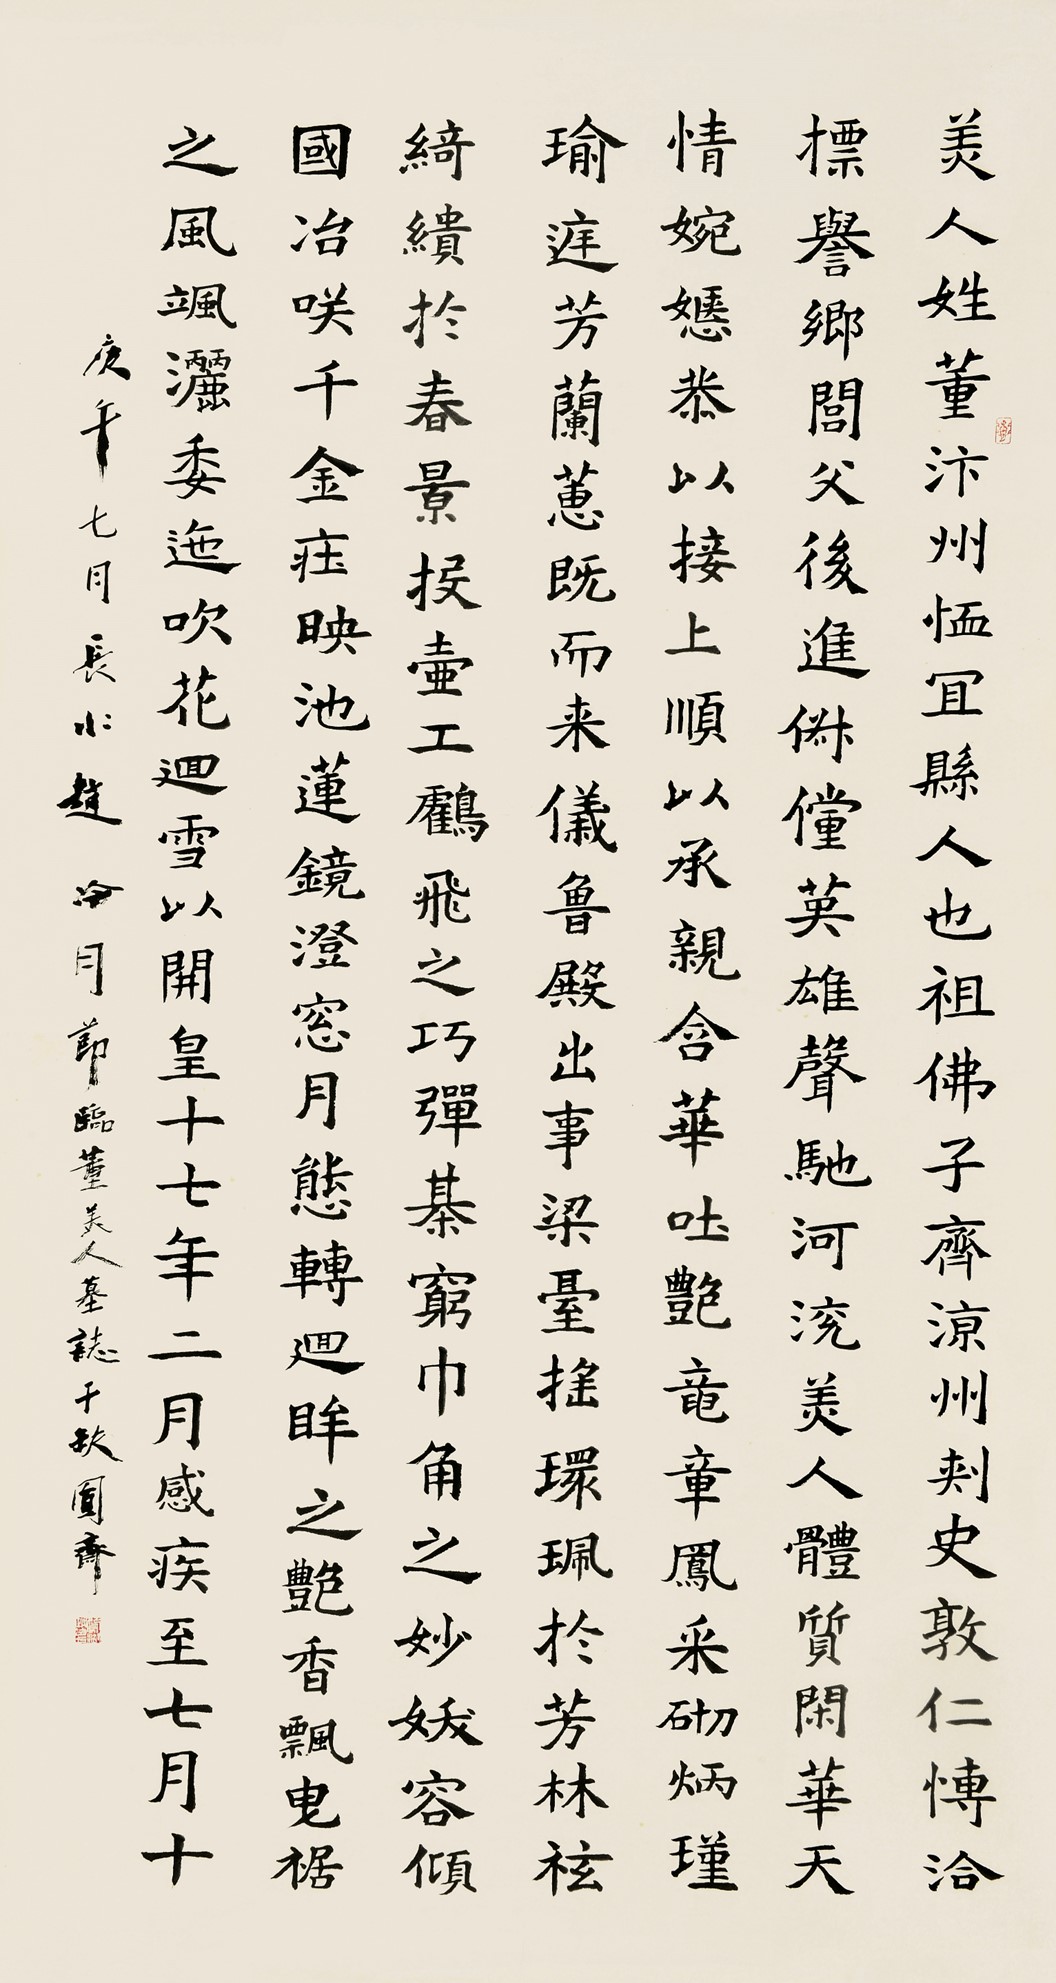 美人姓董汴州恤冝縣人也祖佛子齊涼州刾史敦仁慱洽
標譽鄉閭父後進俶儻英雄聲馳河渷美人體質閑華天
情婉嬺恭以接上順以承親含華吐艷竜章鳳采砌炳瑾
瑜庭芳蘭蕙既而来儀魯殿出事梁臺搖環珮於芳林袨
綺繢於春景投壷工鸖飛之巧彈棊窮巾角之妙妖容傾
國冶咲千金莊映池蓮鏡澄窓月態轉迴眸之艷香飄曳裾
之風颯灑委迤吹花迴雪以開皇十七年二月感疾至七月十
庚年七月長水趙冷月節臨董美人墓誌于缺圓齋